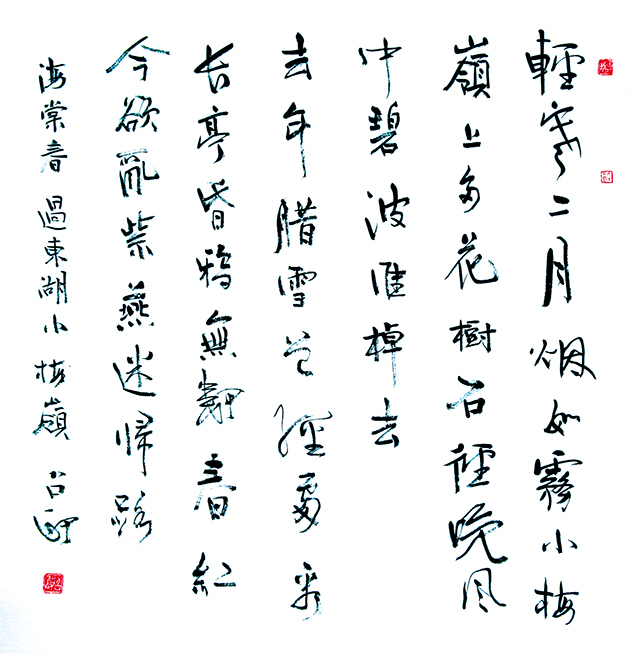 輕寒二月烟如霧小梅
嶺上多花樹石徑晚風
中碧波誰棹去
去年腊雪曾經處
長亭昏鴉無數春紅
今欲亂紫燕迷歸路
海棠春 過東湖小梅嶺